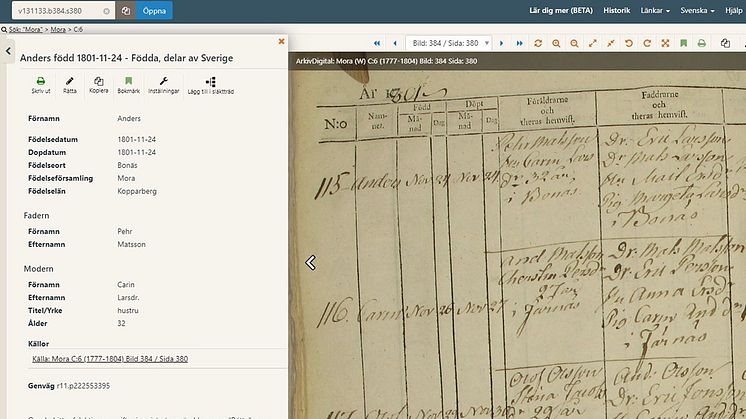 v131133.b384.s380
Öppna
Lär dig mer (BETA)
Historik
Länkar
Svenska
Hjälp
Sök: "Mora" > Mora > C:6
Bild: 384 / Sida: 380
Anders född 1801-11-24 - Födda, delar av Sverige
ArkivDigital: Mora (W) C:6 (1777-1804) Bild: 384 Sida: 380
Skriv ut
Rätta
Kopiera
Bokmärk
Inställningar
Lägg till i släktträd
Förnamn Anders
Födelsedatum 1801-11-24
Dopdatum 1801-11-24
Födelseort Bonäs
Födelseförsamling Mora
Födelselän Kopparberg
Fadern
Förnamn Pehr
Efternamn Matsson
Modern
Förnamn Carin
Efternamn Larsdr.
Titel/Yrke hustru
Ålder 32
Källor
Källa: Mora C:6 (1777-1804) Bild 384 / Sida 380
Genväg r11.p222553395
År 1801
N:o
Nam-
net.
Född
Må-
nad
Dag
Döpt
Må-
nad
Dag
Föräldrarne
och
theras hemvist.
Faddrarne
och
theras hemvist.
115 Anders Nov 24 Nov 24
Pehr Matsson
Hu Carin Lars
dr 32 år,
i Bonäs
Dr. Eric Larsson
Dr Mats Larsson
Pig Margeta Larsdr
i Bonäs
116. Carin Nov 26 Nov 27
And Matsson
27 år
Dr. Mats Matsson
Dr. Eric Persson
Hu Anna Ersdr
Pig Carin And dr
Olof Olsson
29 år
And. Olsson
Dr. Eric Jonsson